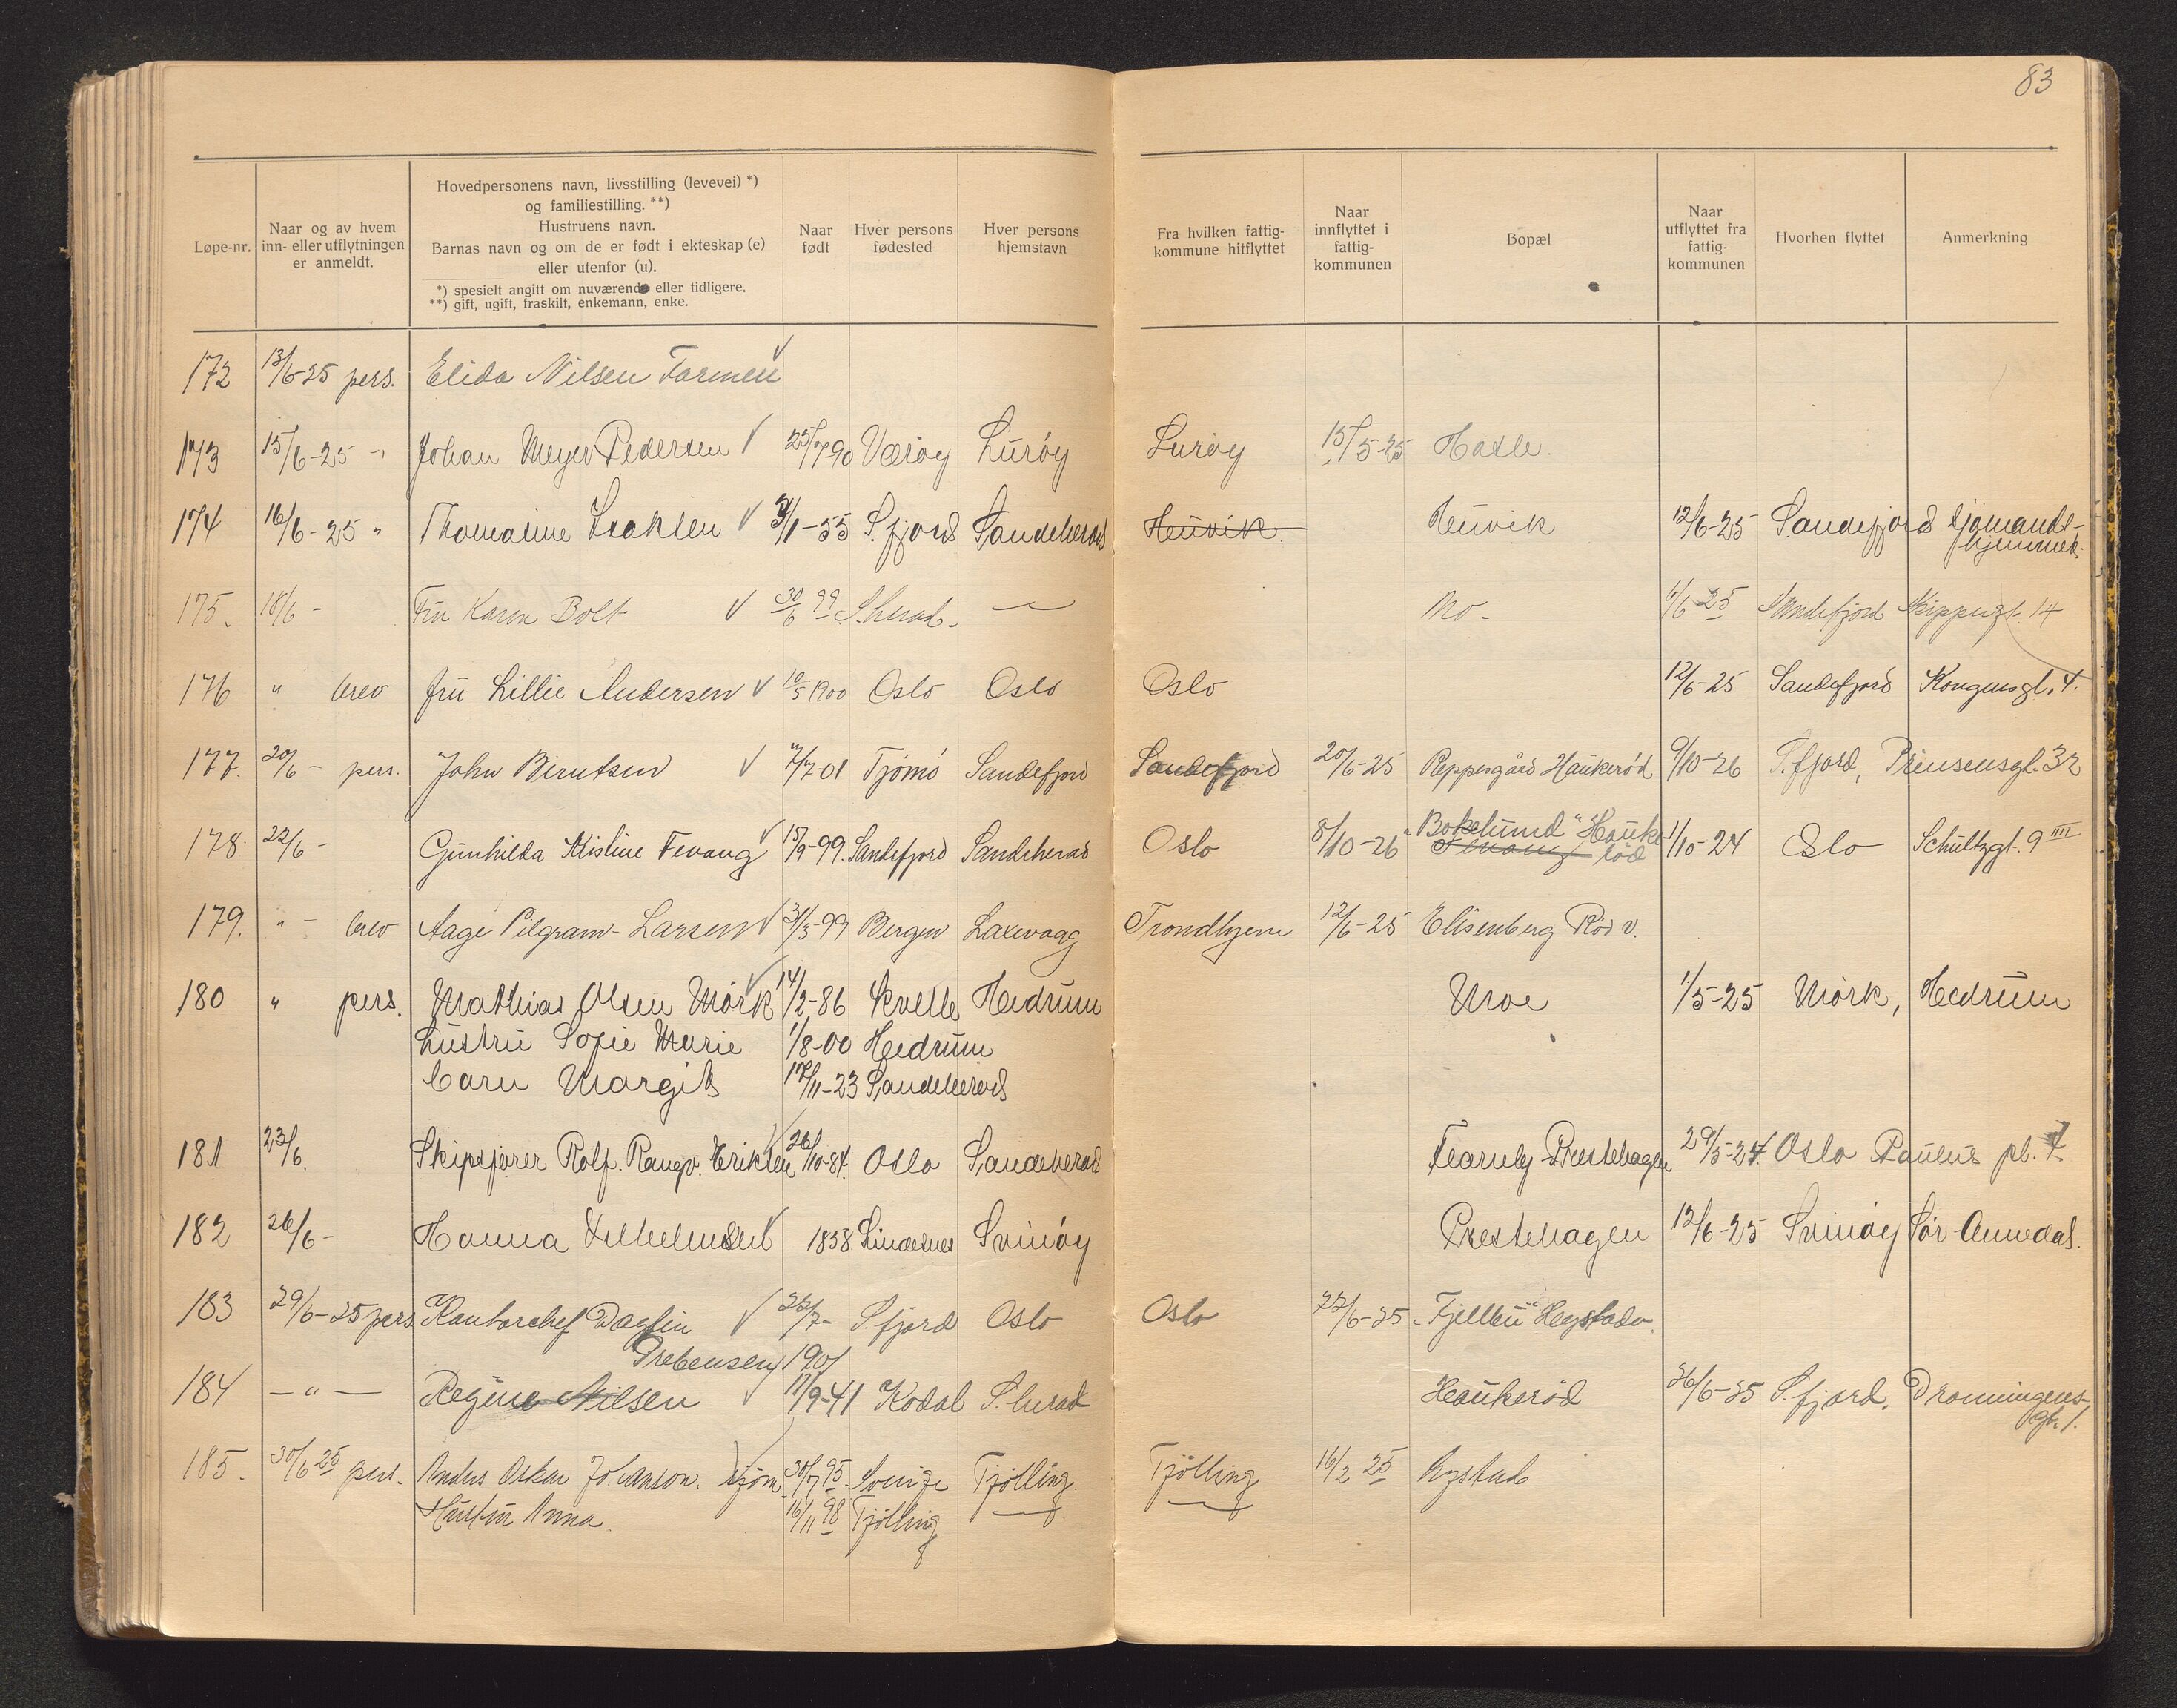 83
Løpe-nr.
Naar og av hvem
inn- eller utflytningen
er anmeldt.
Hovedpersonens navn, livsstilling (levevei) *)
og familiestilling. **)
Hustruens navn.
Barnas navn og om de er født i ekteskap (e)
eller utenfor (u).
*) spesielt angitt om nuværende eller tidligere.
**) gift, ugift, fraskilt, enkemann, enke.
Naar
født
Hver persons
fødested
Hver persons
hjemstavn
Fra hvilken fattig-
kommune hitflyttet
Naar
innflyttet i
fattig-
kommunen
Bopæl
Naar
utflyttet fra
fattig-
kommunen
Hvorhen flyttet
Anmerkning
172 13/6-25 pers. Elida Nilsen Farmen
173 15/6-25 " Johan Meyer Pedersen 25/7 90 Værøy Lurøy Lurøy 15/5-25 Hasle.
174 16/6-25 " Thomasine Isaksen /1-55 S.fjord Sandeherad Heuvik Heuvik 12/6-25 Sandefjord Sjømands-
hjemmet.
175. 18/6 - Fru Karen Bolt 30/6 99 S.herad. — Mo - 1/6 25 Sandefjord Skippergt. 14
176 " brev fru Lillie Andersen 10/5 1900 Oslo Oslo Oslo 12/6-25 Sandefjord Kongensgt. 4.
177. 20/6 - pers. John Berntsen 7/7-01 Tjömö Sandefjord Sandefjord 20/6-25 Peppesgård Haukerød 9/10-26 S.fjord, Prinsensgt. 32
178. 22/6 - Gunhilda Kristine Fevang 15/9-99. Sandefjord Sandeherad Oslo 8/10-26 "Bokelund" Hauke
rød Fevang 1/10-24 Oslo Schultzgt. 9 IIII
179. " - brev Aage Pilgram-Larsen 31/3-99 Bergen Laxevaag Trondhjem 12/6-25 Elisenberg Rød v.
180 " pers. Mathias Olsen Mörk 14/2-86 Kvelle Hedrum Moe 1/5-25 Mörk, Hedrum
hustru Sofie Marie 1/8-00 Hedrum
barn Margit 17/11-23 Sandeherad
181 23/6. Skipsfører Rolf. Rangv. Eriksen 26/10-84. Oslo Sandeherad Fearnly Prestehagen 29/5-24 Oslo Paulus pl.
182 26/6 - Hanna Vilhelmsen 1858 Lindesnes Svinöy Prestehagen 12/6-25 Svinöy Sör-Audnedal.
183 29/6-25 pers Kontorchef Dagfin 22/7- S.fjord Oslo Oslo 22/6-25 "Fjellbu" Hegstadv.
Prebensen 1901
184 — " — Regine Nilsen 17/9-41 Kodal S.herad Haukerød 26/6-25 S.fjord. Dronningens-
gt. 1.
185. 30/6 25 pers. Anders Oskar Johanson. Sjöm. 30/7 95. Sverige Tjölling Tjölling 16/2 25 Nystad
Hustru Anna. 16/11 98 Tjölling — —